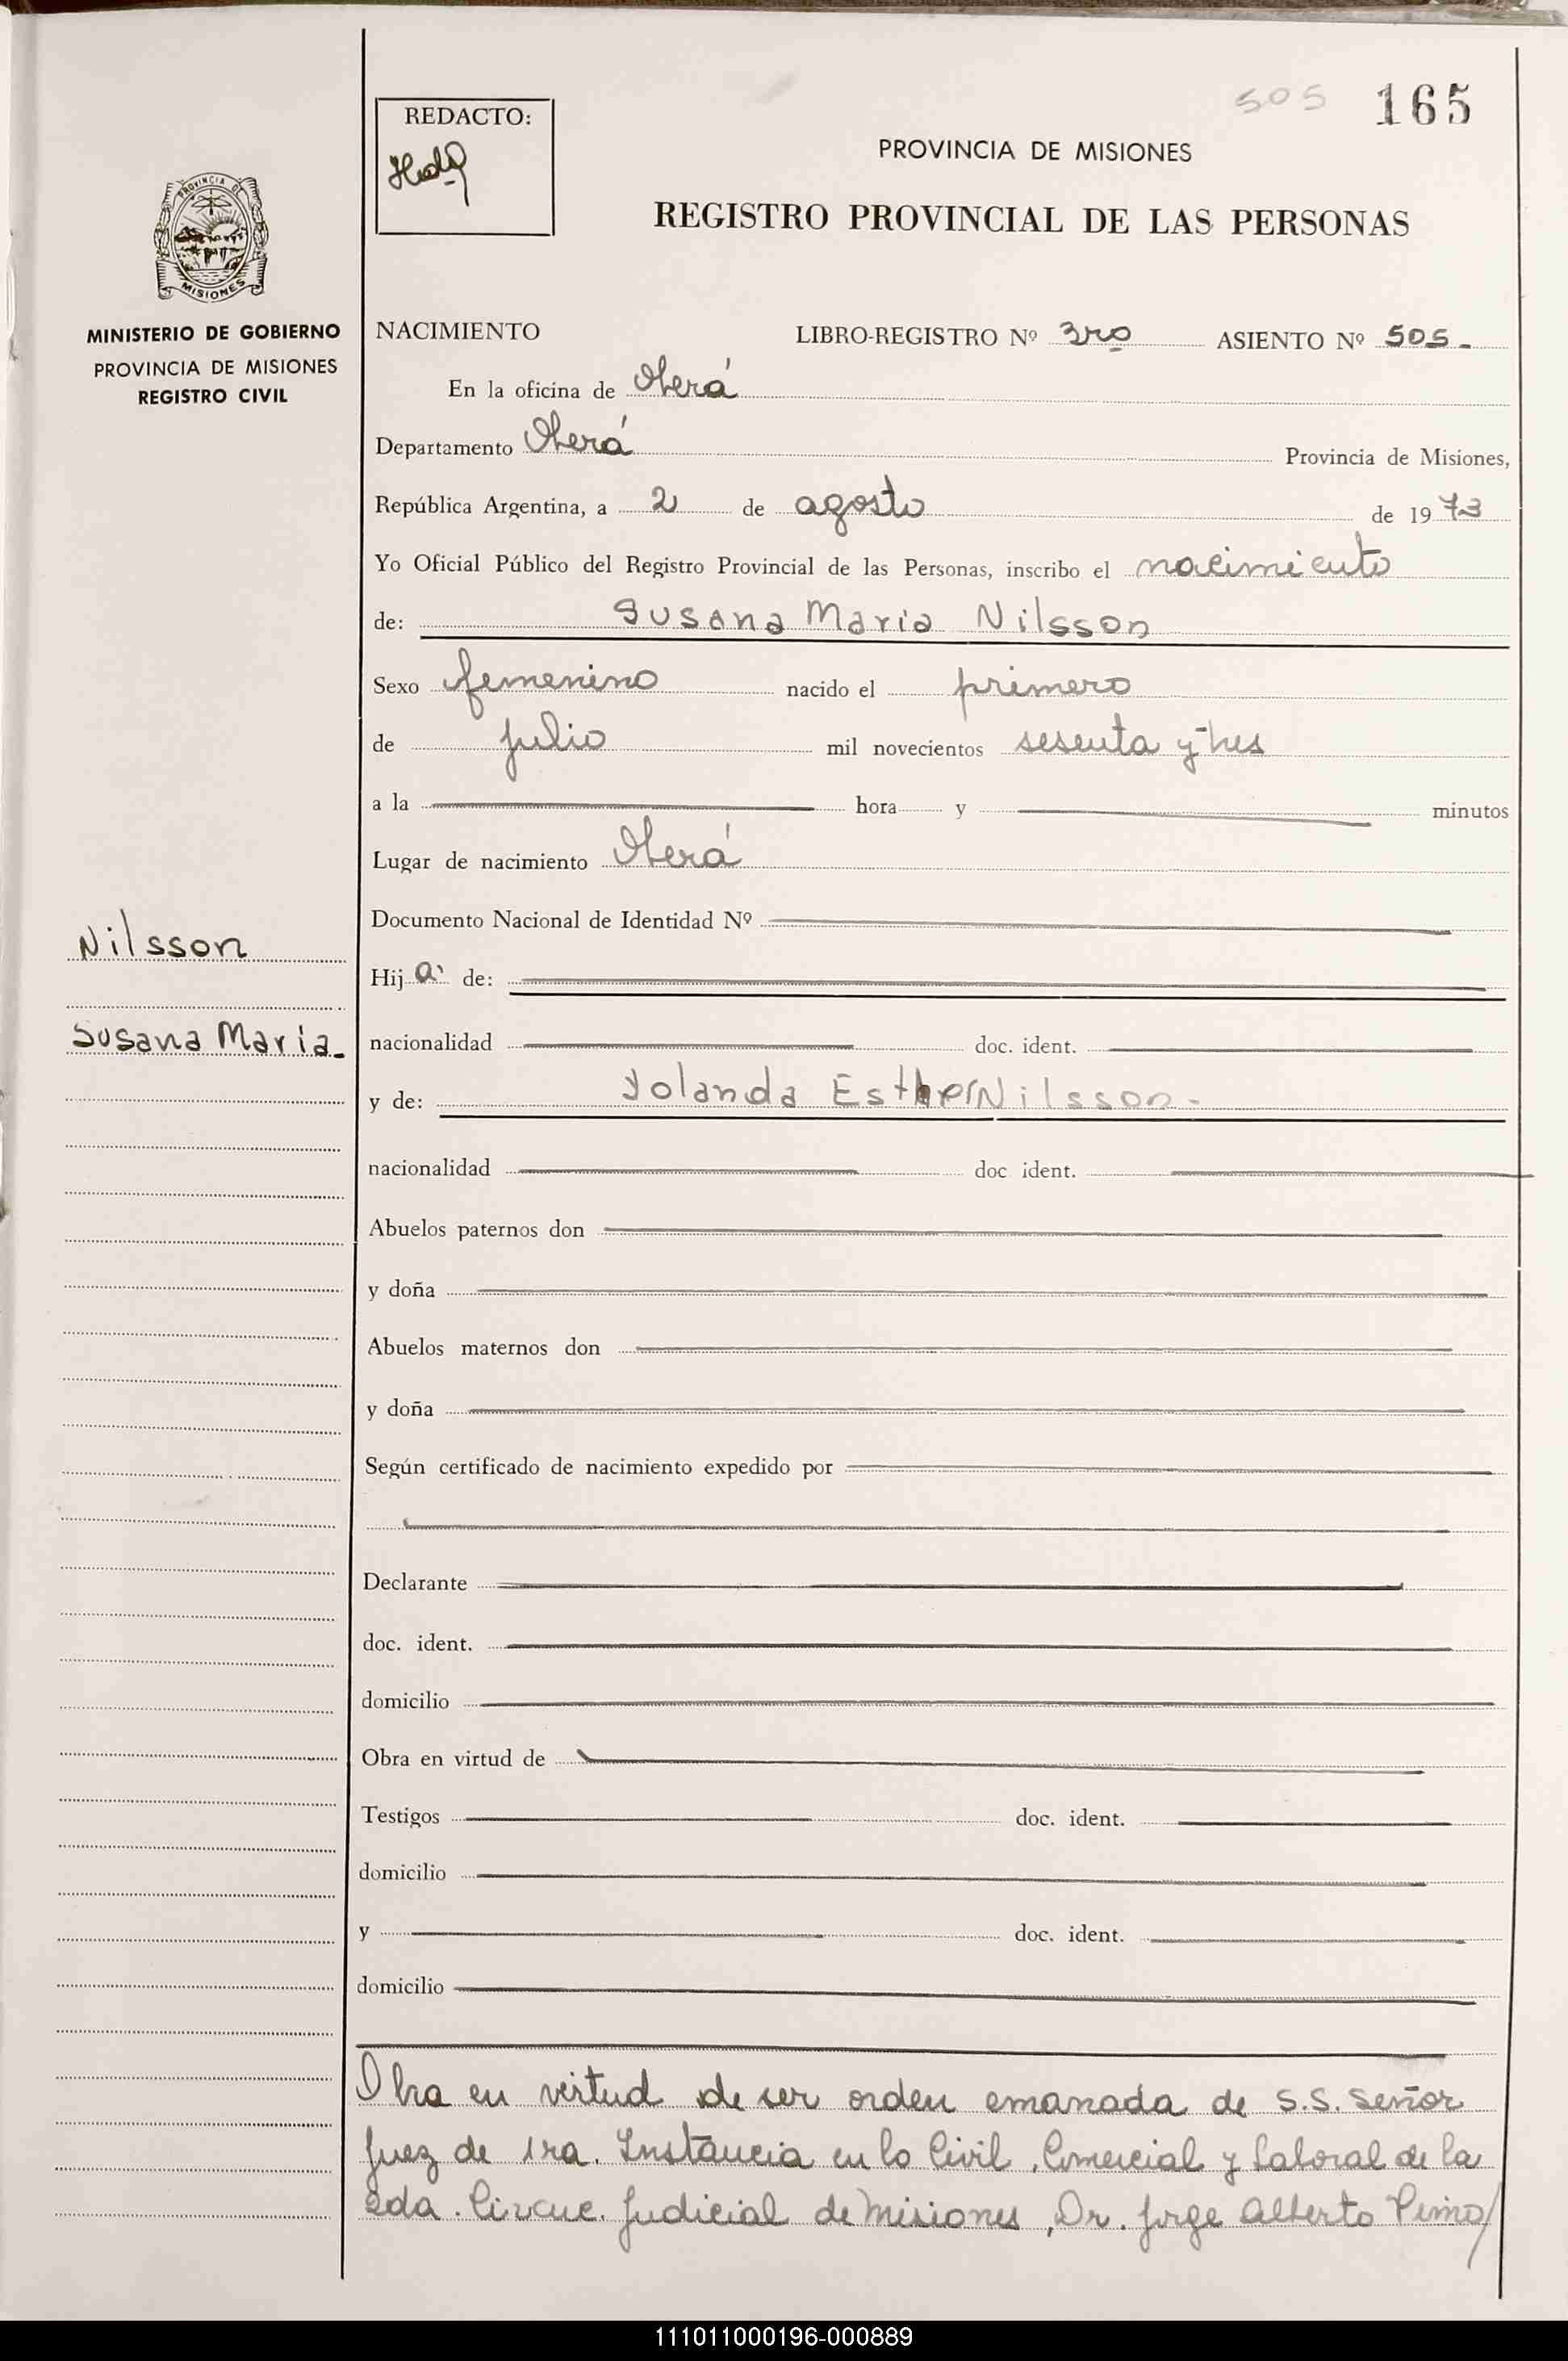 505 165
REDACTO:
PROVINCIA DE MISIONES
REGISTRO PROVINCIAL DE LAS PERSONAS
PROVINCIA DE
MISIONES
MINISTERIO DE GOBIERNO
PROVINCIA DE MISIONES
REGISTRO CIVIL
NACIMIENTO LIBRO-REGISTRO Nº 3ro ASIENTO Nº 505-
En la oficina de Oberá
Departamento Oberá Provincia de Misiones,
República Argentina, a 2 de agosto de 1973
Yo Oficial Público del Registro Provincial de las Personas, inscribo el nacimiento
de: Susana Maria Nilsson
Sexo femenino nacido el primero
de julio mil novecientos sesenta y tres
a la hora y minutos
Lugar de nacimiento Oberá
Documento Nacional de Identidad Nº
Nilsson
Hija de:
Susana Maria-
nacionalidad doc. ident.
y de: Yolanda Esther Nilsson-
nacionalidad doc ident.
Abuelos paternos don
y doña
Abuelos maternos don
y doña
Según certificado de nacimiento expedido por
Declarante
doc. ident.
domicilio
Obra en virtud de
Testigos doc. ident.
domicilio
y doc. ident.
domicilio
Obra en virtud de ser orden emanada de S.S. Señor
Juez de 1ra. Instancia en lo Civil, Comercial y Laboral de la
2da. Circuc. Judicial de Misiones, Dr. Jorge Alberto
111011000196-000889